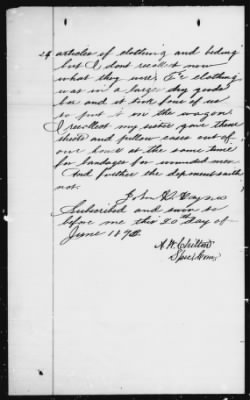 24 articles of clothing and beding
but I dont recollect now
what they were. The clothing
was in a large dry goods
box and it took four of us
to put it in the wagon
I recollect my sister gave them
sheets and pillow cases out of
our house at the same time
for bandages for wounded men.
And further the deponent saith
not.
John
Subscribed and sworn to
before me this 20th day of
June 1872
A. W. Shelton
Spec. Com.